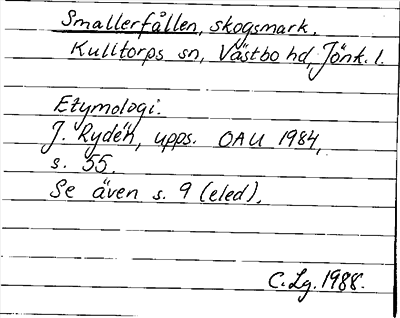 Smallerfållen, skogsmark.
Kulltorps sn, Västbo hd, Jönk. l.
Etymologi.
J. Rydén, upps. OAU 1984,
s. 55.
Se även s. 9 (eled).
C. Lg. 1988.